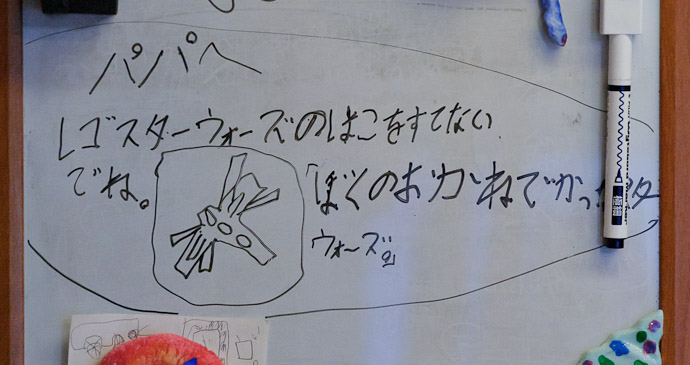 パパへ
レゴスターウォーズのはこをすてない
でね。
「ぼくのおかねでかった
ウォーズ。」